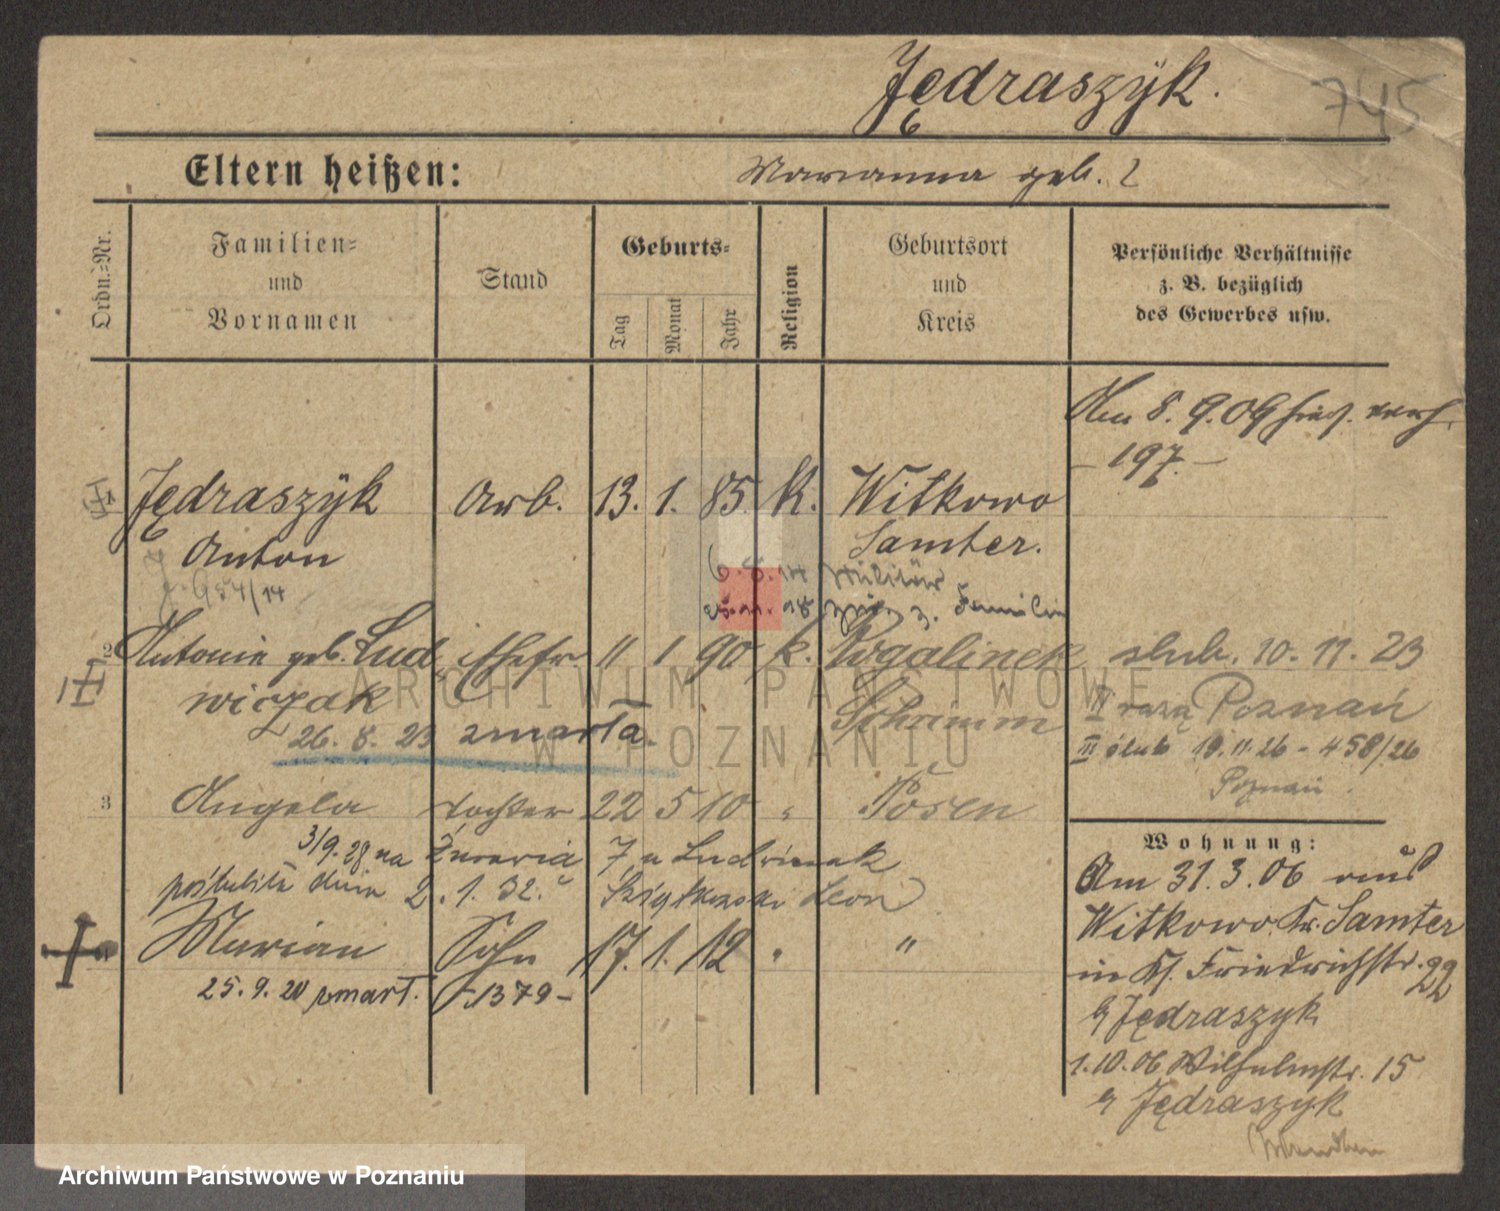 Jędraszÿk.
745
Eltern heißen:
Marianna geb. ?
Ordn.-Nr.
Familien-
und
Vornamen
Stand
Geburts-
Tag
Monat
Jahr
Religion
Geburtsort
und
Kreis
Persönliche Verhältnisse
z. B. bezüglich
des Gewerbes usw.
Am 8. 9. 09 verh.
- 197. -
1 Jędraszÿk Arb. 13. 1. 85. K. Witkowo
Anton Samter.
J. 954/14
6. 8. 14 Militär
25. 11. 18 z. Familie
2 Antonie geb. Lud Ehefr. 11 1 90 k. Rogalinek
wiczak Schrimm
26. 8. 23 zmarła.
slub. 10. 11. 23
II razą Poznań
III ślub 19. 11. 26 - 458/26
Poznań
3 Angela Tochter 22 5 10 " Posen
3/9. 28 na Żurawią 7 u Ludwiczak
poślubiła dnia 2. 1. 32. Leon
4 Marian Sohn 17. 1. 12 " "
25. 9. 20 zmarł. - 1379 -
Wohnung:
Am 31. 3. 06 aus
Witkowo Kr. Samter
in Friedrichstr. 22
b/ Jędraszyk
1. 10. 06 Wilhelmstr. 15
b/ Jędraszyk
ARCHIWUM PAŃSTWOWE
W POZNANIU
Archiwum Państwowe w Poznaniu